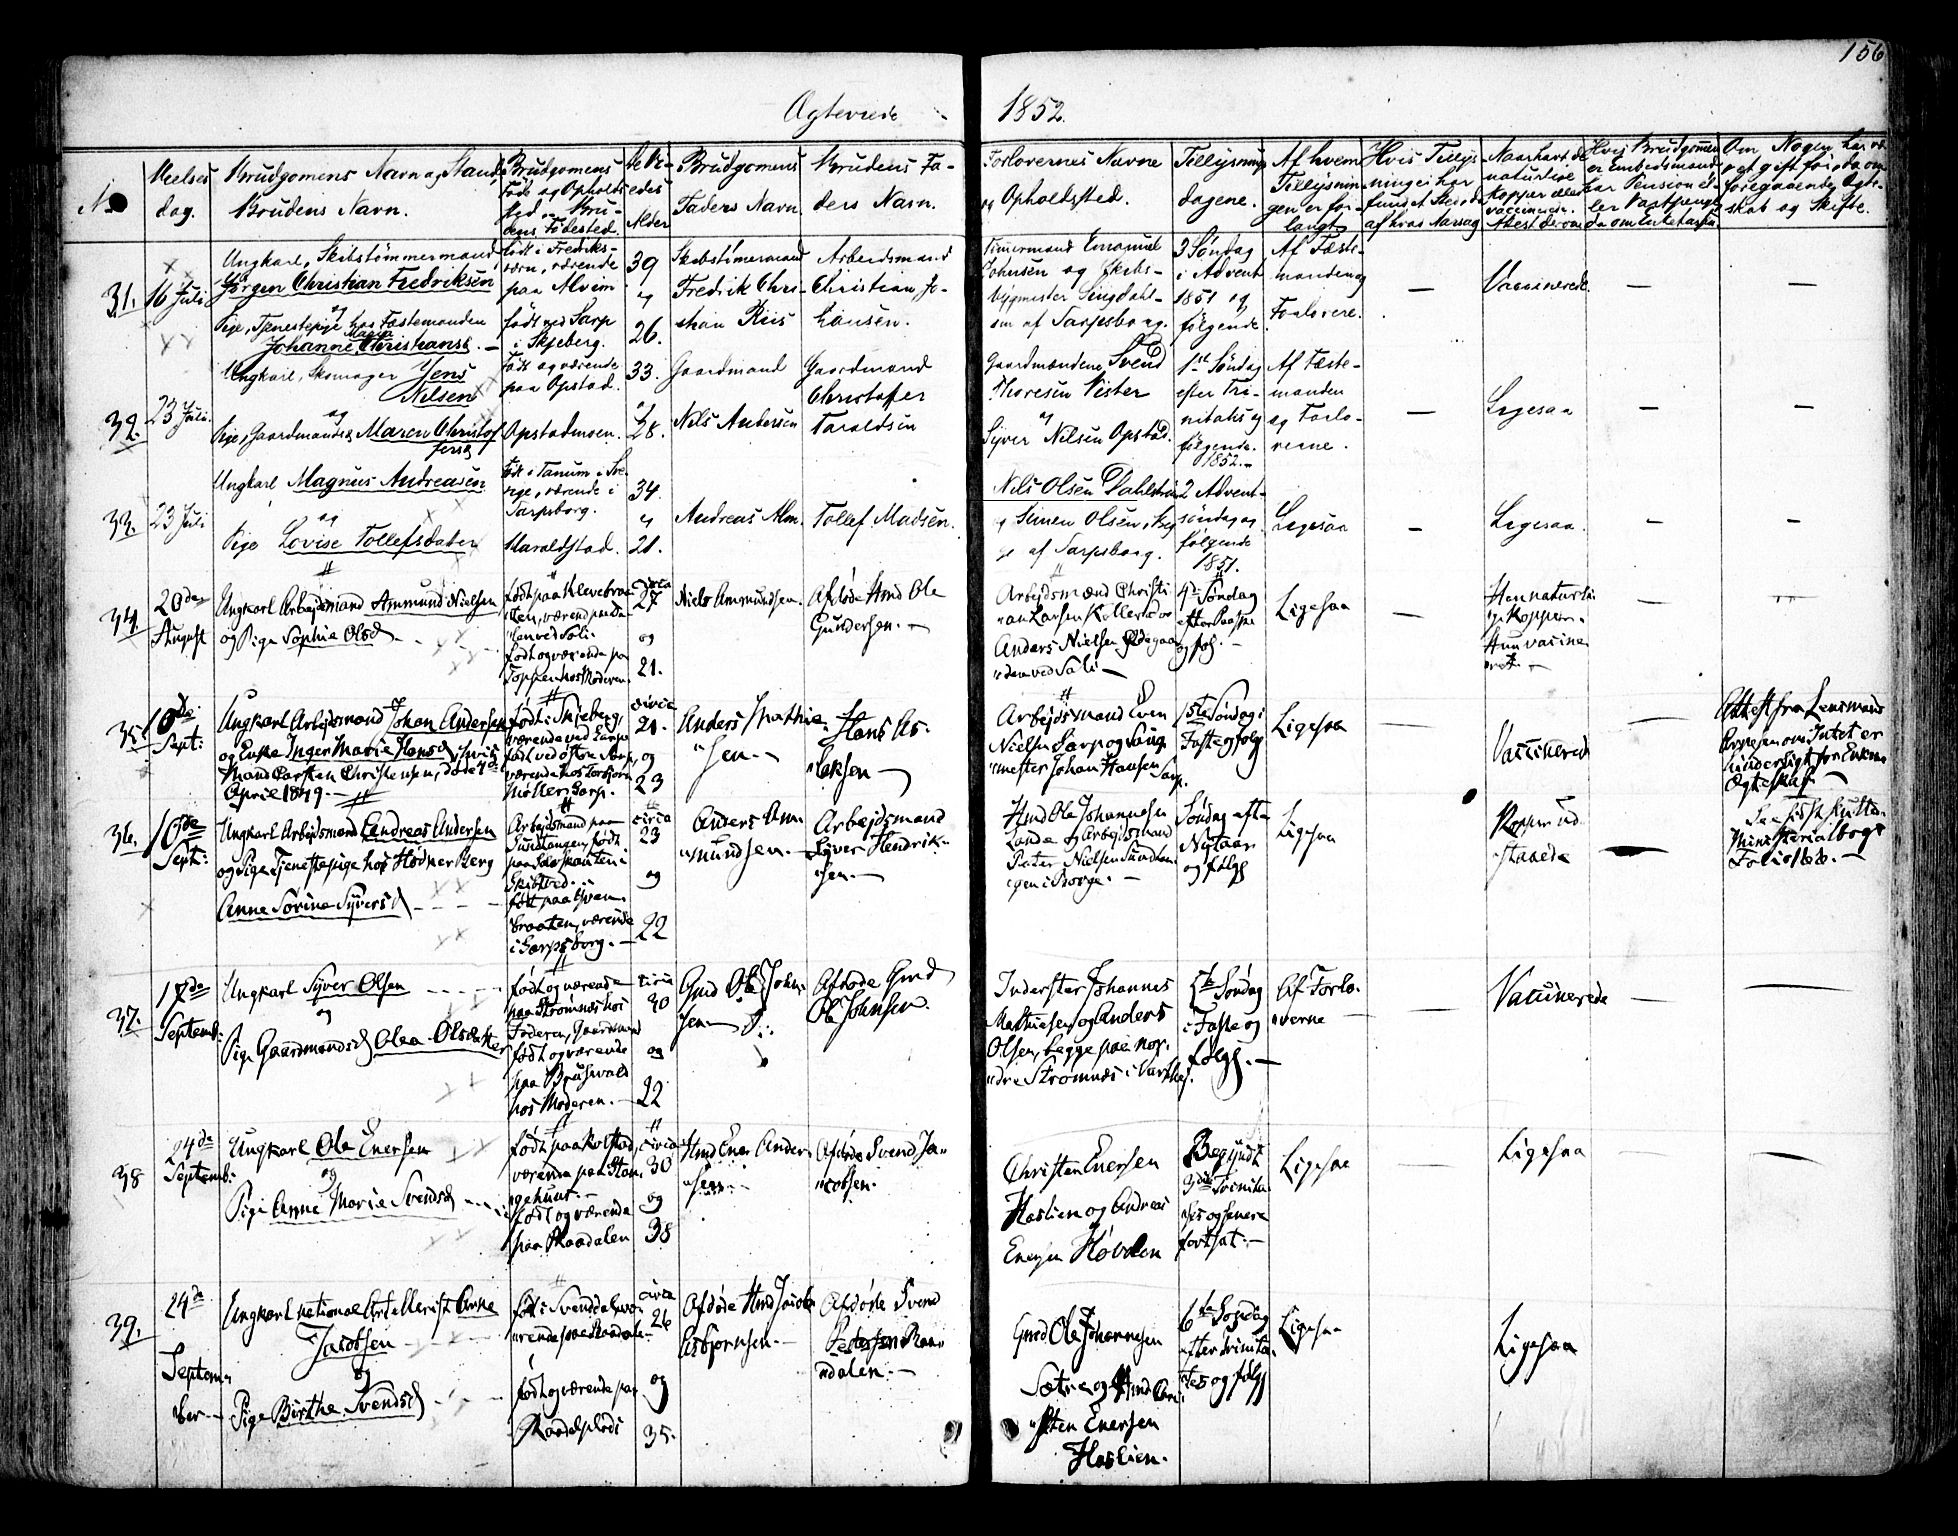 156
Egteviede 1852.
No
Vielses
dag.
Brudgomens Navn og Stand,
Brudens Navn.
Brudgomens
Føde og Opholds
sted Bru-
dens Fødested.
Alder
Brudgomens
Faders Navn.
Brudens Fa-
ders Navn.
Forlovernes Navne
og Opholdsted.
Tillysnings
dagene.
Af hvem
Tillysnin-
gen er for-
langt
Hvis Tillys
ning ei har
fundet Sted da
af hvas Aarsag
Naar havt de
naturlige
Kopper eller
vaccinerede.
Hvis Brudgomen
er Embedsmand
har Pension el-
ler
Om Nogen har væ-
ret gift før, da om
foregaaende Egte-
skab og Skifte.
31.
16 Juli
Ungkarl, Skibstømmermand
Jørgen Christian Fredriksen
og
Pige, Tjenestepige hos Fæstemanden
Johanne Maria Christiansd.
født i Fredriks-
værn, værende
paa Alvim
født ved Sarp
i Skjeberg.
39
og
26.
Skibstimermand
Fredrik Chri-
stian Riis
Arbeidsmand
Christian Jo-
hansen.
Timermand Emanuel
Johnsen og Skibs-
bygmester
af Sarpsborg.
3 Søndag
i Advent
1851 og
følgende
Af Fæste-
manden og
Forlovere.
—
Vaccinerede
—
—
32.
23 Juli.
Ungkarl, Skomager Jens
Nilsen
og
Pige, Gaardmandsd. Maren Christof
fersd
Født og værende
paa Opstad.
Opstadmoen.
33.
og
28.
Gaardmand
Nils Andersen
Gaardmand
Christofer
Taraldsen
Gaardmændene Svend
Thoresen Vister
og
Syver Nilsen Opstad.
1ste Søndag
efter Tri-
nitatis og
følgende.
1852.
Af Fæste-
manden
og Forlo-
verne.
—
Ligesaa
—
—
33.
23 Juli
Ungkarl Magnus Andreasen
og
Pige Lovise Tollefsdatter
Født i Tanum i Sve-
rige, værende i
Sarpsborg.
Haraldstad.
34.
og
21.
Andreas Alm.
Tollef Madsen.
Nils Olsen Dahlstrøm
og Simen Olsen,
af Sarpsborg.
2 Advent-
søndag og
følgende
1851.
Ligesaa
—
Ligesaa.
—
—
34
20de
August
Ungkarl Arbejdsmand Ammund Nielsen
og Pige Sophie Olsd
født paa Klevebraa-
ten, værend paa
ved Soli-
født og værende paa
Toppen hos Moderen.
circa
27
og
21.
Niels Ammundsen.
Afdøde Hmd Ole
Gundersen. —
Arbejdsmænd Christi
an Larsen og
Anders Nielsen Ødegaar
den ved Soli —
4de Søndag
efter Paaske
og følg. —
Ligesaa
—
Han naturli
ge Kopper.
Hun vacine
ret. —
—
35
10de
Sept:
Ungkarl Arbejdsmand Johan Andersen
og Enke Inger Marie Hansd, hvis
Mand Carsten Christensen, døde 7de
April 1849. —
født i Skjeberg,
værende ved Sarp
født ved østre Sarp,
værende hos Torbjørn
Møller Sarp.
circa
21.
og
23
Anders Mathie
sen. —
Hans As-
laksen —
Arbejdsmand Even
Nielsen Sarp og Saug
mester Johan Hansen Sarp.
1ste Søndag i
Faste og følg
Ligesaa
—
Vaccinered
—
Attest fra Lensmand
om Intet er
hinderligt for Enkens
Egteskab —
36.
10de
Sept:
Ungkarl Arbejdsmand Andreas Andersen
og Pige Tjenestepige hos Høker Berg
Anne Sorine Syversd
Arbejdsmand paa
Sundløkken, født
paa i
født paa
braaten, værende
i Sarpsborg. —
circa
23
og
22
Anders Am-
mundsen. —
Arbejdsmand
Syver Hendrik-
sen. —
Hmd Ole Johannesen
Lande og Arbejdsmand
Peter Nielsen
gen i Borge. —
Søndag efter
Nytaar
og følgg
Ligesaa
Kopper ud
staaede
—
Ministerialbogs
Folio
37.
17de
Septemb:
Ungkarl Syver Olsen
og
Pige Gaardmandsd Olea Olsdatter
født og værende
paa Strømnes hos
Faderen, Gaardmand
født og værende
paa Brusevold
hos Moderen. —
circa
40
og
22
Gmd Ole John-
sen —
Afdøde Gmd
Ole Johnsen.
Inderster Johannes
Mathiesen og Anders
Olsen, begge paa nor-
dre Strømnes i Vartheig.
5te Søndag
i Faste og
følgg. —
Af Forlo-
verne
—
Vaccinerede
—
—
38
24de
Septemb:
Ungkarl Ole Enersen
og
Pige Anne Marie Svendsd
født paa Kolstad,
værende paa Stan-
gehuut. —
født og værende
paa Raadalen
circa
30
og
38
Hmd Ener Ander-
sen.
Afdøde Svend Ja-
cobsen.
Christen Enersen
Haslien og Andreas
Enersen Høvden
Begyndt
3die Trinita
tis og senere
fortsat. —
Ligesaa
—
Ligesaa
—
—
39.
24de
Septem-
ber —
Ungkarl national Artellerist Arne
Jacobsen
og
Pige Birthe Svendsd
født i Svenddal væ-
rende paa Raadalen
født og værende paa
Raadalplads
circa
26
og
35.
Afdøde Hmd Jacob
Asbjørnsen. —
Afdøde Svend
Petersen Raa-
dalen. —
Gmd Ole Johannesen
Sætre og Hmd Chri-
sten Enersen
Haslien.
6te Søndag
efter Trinita-
tes og følgg
Ligesaa
Ligesaa